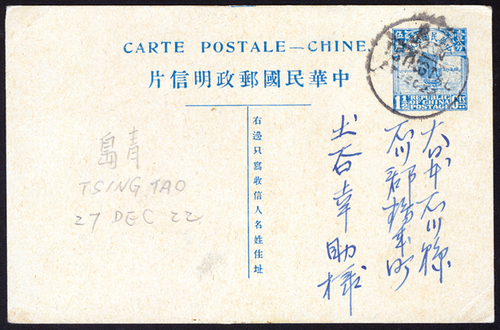 CARTE POSTALE—CHINE
片信明政郵國民華中
右邊只寫收信人名姓住址
REPUBLIC
OF CHINA
POSTAGE
大日本石川縣
石川郡松任町
土谷幸助様
島青
TSINGTAO
27 DEC 22